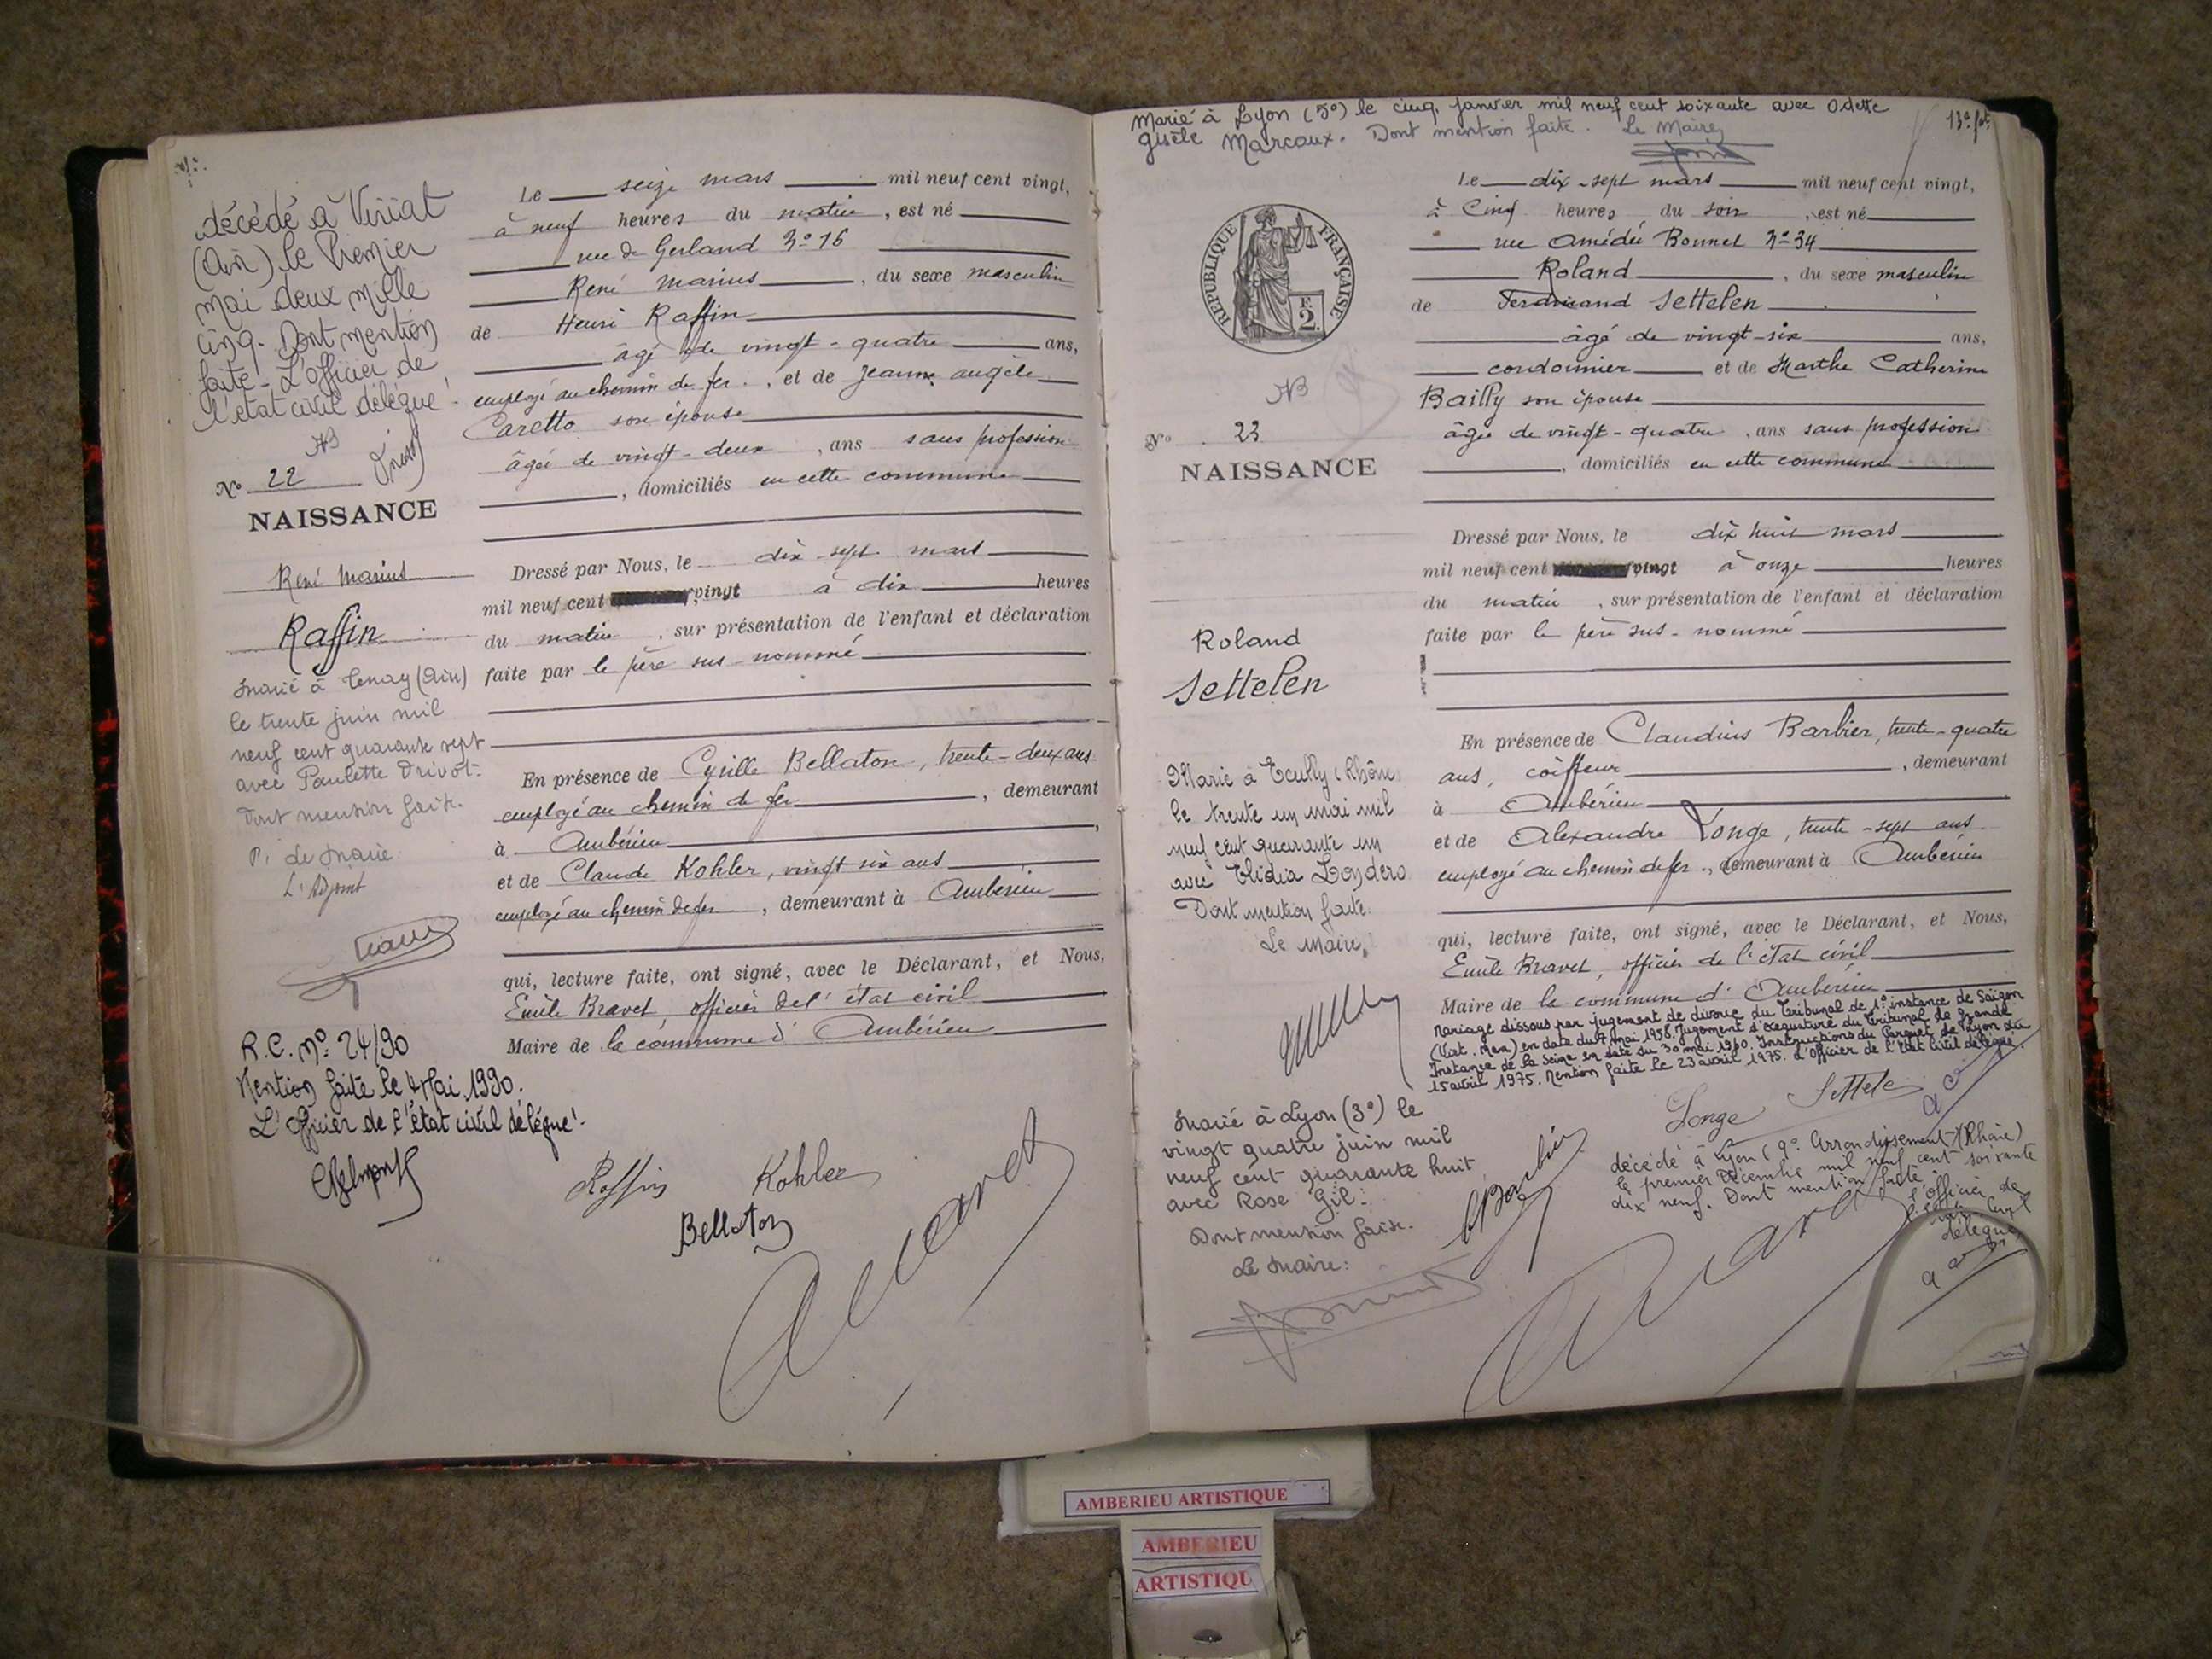 décédé à Viriat
(Ain) le Premier
mai deux mille
cinq. Dont mention
faite. L'officier de
l'état civil délégué.
NB
N° 22
NAISSANCE
René Marius
Raffin
Marié à Tenay (Ain)
le trente juin mil
neuf cent quarante sept
avec Paulette Drivot.
Dont mention faite.
P. le Maire
L'Adjoint
R.C. N° 24/90
Mention faite le 4 Mai 1990.
L'Officier de l'état civil délégué.
Le seize mars mil neuf cent vingt,
à neuf heures du matin, est né
rue de Gerland N° 16
René Marius, du sexe masculin
de Henri Raffin
âgé de vingt-quatre ans,
employé au chemin de fer, et de Jeanne Angèle
Caretto son épouse
âgée de vingt-deux, ans sans profession
, domiciliés en cette commune
Dressé par Nous, le dix-sept mars
mil neuf cent vingt à dix heures
du matin, sur présentation de l'enfant et déclaration
faite par le père sus-nommé
En présence de Cyrille Bellaton, trente-deux ans
employé au chemin de fer, demeurant
à Ambérieu,
et de Claude Kohler, vingt six ans
employé au chemin de fer, demeurant à Ambérieu
qui, lecture faite, ont signé, avec le Déclarant, et Nous,
Emile Bravet, officier de l'état civil
Maire de la commune d'Ambérieu
Raffin Kohler
Bellaton
Marié à Lyon (5°) le cinq janvier mil neuf cent soixante avec Odette
Gisèle Marcaux. Dont mention faite. Le Maire,
13e ft
RÉPUBLIQUE FRANÇAISE
F.
2.
NB
N° 23
NAISSANCE
Roland
Settelen
Marié à Ecully (Rhône
le trente un mai mil
neuf cent quarante un
avec Elidia Londero
Dont mention faite.
Le Maire,
Marié à Lyon (3°) le
vingt quatre juin mil
neuf cent quarante huit
avec Rose Gil.
Dont mention faite.
Le Maire:
Le dix-sept mars mil neuf cent vingt,
à cinq heures du soir, est né
rue Amédée Bonnet N° 34
Roland, du sexe masculin
de Ferdinand Settelen
âgé de vingt-six ans,
cordonnier et de Marthe Catherine
Bailly son épouse
âgée de vingt-quatre, ans sans profession
, domiciliés en cette commune
Dressé par Nous, le dix huit mars
mil neuf cent vingt à onze heures
du matin, sur présentation de l'enfant et déclaration
faite par le père sus-nommé
En présence de Claudius Barbier, trente-quatre
ans, coiffeur, demeurant
à Ambérieu
et de Alexandre Longe, trente-sept ans
employé au chemin de fer, demeurant à Ambérieu
qui, lecture faite, ont signé, avec le Déclarant, et Nous,
Emile Bravet, officier de l'état civil
Maire de la commune d'Ambérieu
Mariage dissous par jugement de divorce du Tribunal de 1° instance de Saïgon
(Viet-Nam) en date du 7 mai 1956. Jugement d'exequature du Tribunal de Grande
Instance de la Seine en date du 30 mai 1960. Instructions du Parquet de Lyon du
15 avril 1975. Mention faite le 23 avril 1975. L'Officier de l'Etat Civil délégué.
Longe Settele
Barbier
décédé à Lyon (9° Arrondissement) (Rhône)
le premier Décembre mil neuf cent soixante
dix neuf. Dont mention faite
l'officier de
l'état civil
délégué
AMBERIEU ARTISTIQUE
AMBERIEU
ARTISTIQU